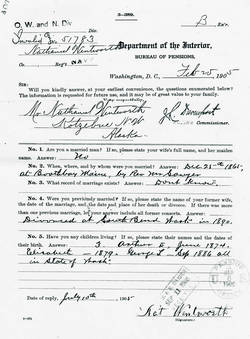 3—389.
O. W. and N. Div.
B Exr.
Div.
51783
Nathaniel Wentworth
Department of the Interior,
Co. , Reg't NAVY
BUREAU OF PENSIONS,
Washington, D. C., Feb 25, 1905
Mr Nathaniel Wentworth
Kotzebue
Alaska
J L Davenport
Commissioner.
No. 1. Are you a married man? If so, please state your wife's full name, and her maiden name. Answer: No
No. 2. When, where, and by whom were you married? Answer: Dec 25th 1865,
at Boothbay Maine, by Rev Mr Sawyer
No. 3. What record of marriage exists? Answer: Dont Know
No. 4. Were you previously married? If so, please state the name of your former wife,
the date of the marriage, and the date and place of her death or divorce. If there was more
than one previous marriage, let your answer include all former consorts. Answer:
Divorced at South Bend Wash in 1890.
No. 5. Have you any children living? If so, please state their names and the dates of
their birth. Answer: 3. Arthur E, June 1874.
Elizabeth — 1879. George L Sep 1886 all
in State of Wash
Date of reply, July 10th, 1905
Nat Wentworth
(Signature.)